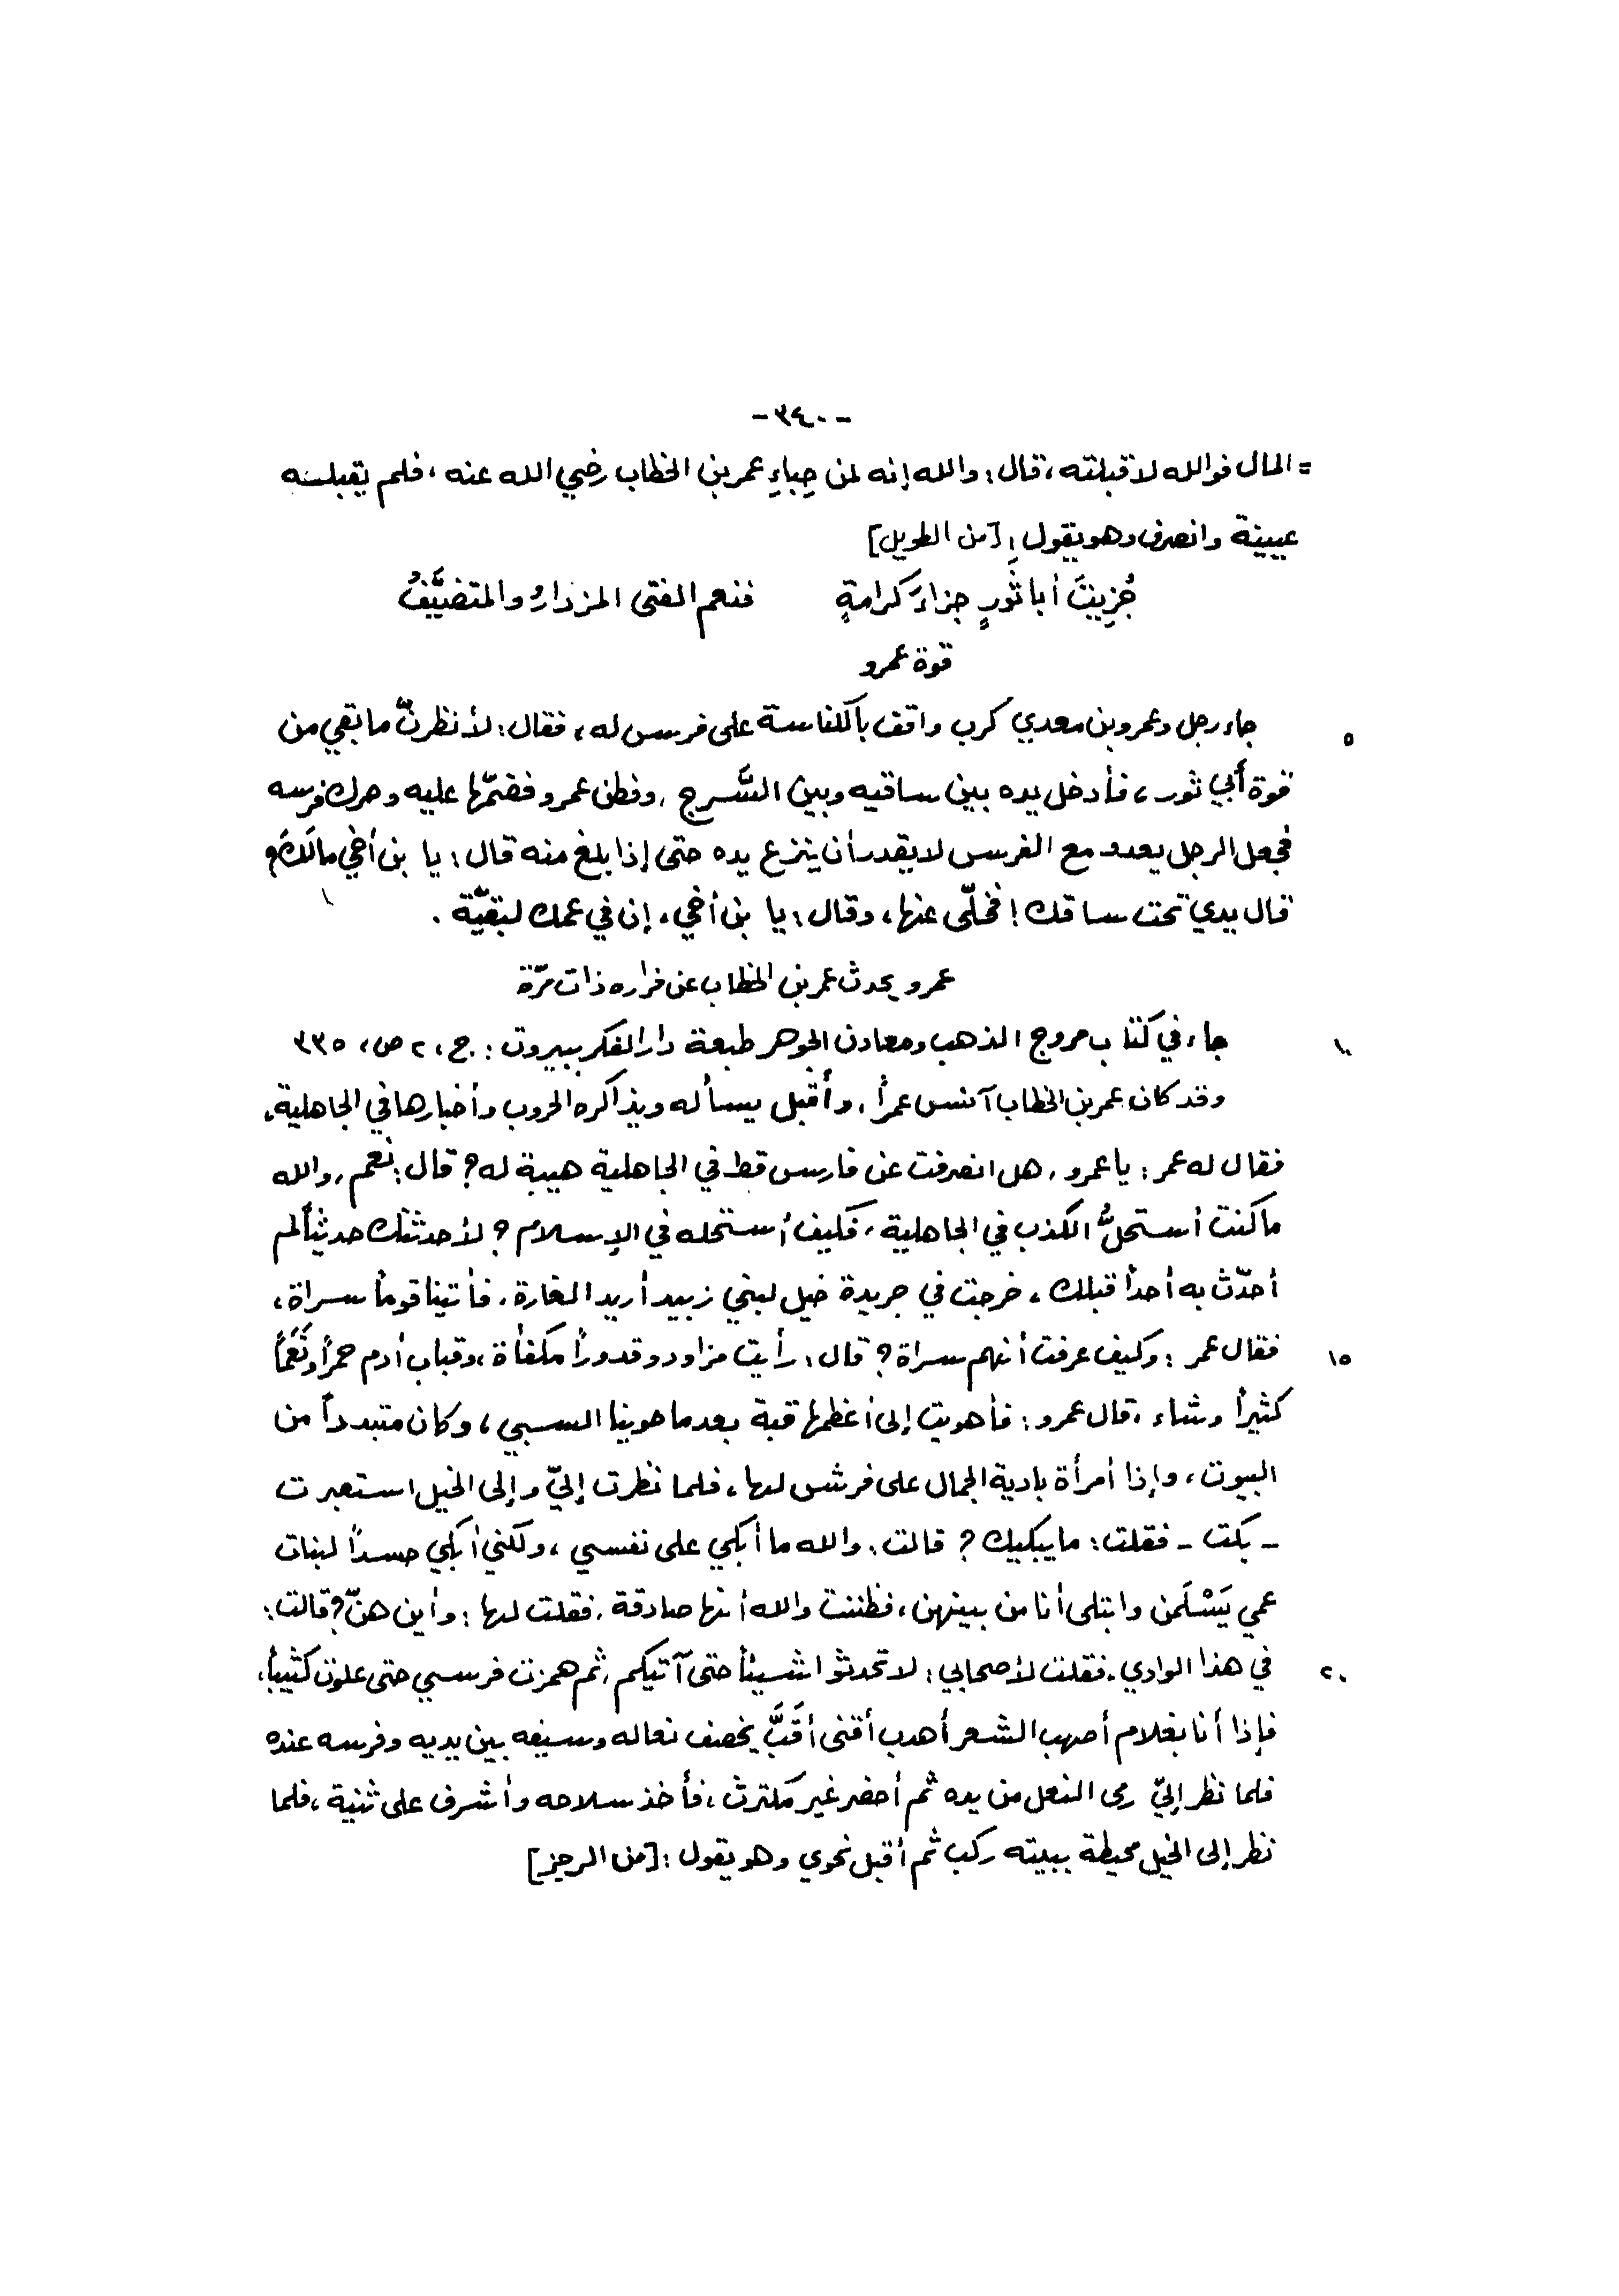 -٣٤٠-
= المال فوالله لاقبلته ، قال : والله إنه لمن حِباءِ عمر بن الخطاب رضي الله عنه ، فلم يقبلـه
عيينة وانصرف وهو يقول : [من الطويل]
جُزِيتَ أبا ثَورٍ جزاءَ كرامةٍ    فنعم الفتى المزدارُ والمتضيَّفُ
قوة عمرو
جاء رجل وعمرو بن معدي كرب واقف بالكناسة على فرس له ، فقال : لأنظرنّ ما بقي من
٥
قوة أبي ثور ، فأدخل يده بين ساقيه وبين السَّرج ، وفطن عمرو فضمّها عليه وحرك فرسه
فجعل الرجل يعدو مع الفرس لايقدر أن ينزع يده حتى إذا بلغ منه قال : يا بن أخي مالَكَ ؟
قال يدي تحت ساقك ! فخلّى عنها ، وقال : يا بن أخي ، إن في عمك لبقيّة .
عمرو يحدث عمر بن الخطاب عن فراره ذات مرّة
جاء في كتاب مروج الذهب ومعادن الجوهر طبعة دار الفكر ببيروت : ج ، ٢ ص ، ٣٣٥
١٠
وقد كان عمر بن الخطاب آنس عمراً ، وأقبل يسأله ويذاكره الحروب وأخبارها في الجاهلية ،
فقال له عمر : يا عمرو ، هل انصرفت عن فارس قط في الجاهلية هيبة له ؟ قال : نعم ، والله
ما كنت أستحلُّ الكذب في الجاهلية ، فكيف أستحله في الإسلام ؟ لأحدثنك حديثاً لم
أحدّث به أحداً قبلك ، خرجت في جريدة خيل لبني زبيد أريد الغارة . فأتينا قوماً سراة ،
فقال عمر : وكيف عرفت أنهم سراة ؟ قال : رأيت مزاود وقدوراً مكفأة ، وقباب أدم حمراً ونَعَماً
١٥
كثيراً وشاء ، قال عمرو : فأهويت إلى أعظمها قبة بعد ما حوينا السبي ، وكان متبدداً من
البيوت ، وإذا أمرأة بادية الجمال على فرش لها ، فلما نظرت إليّ وإلى الخيل استعبرت
- بكت - فقلت : مايبكيك ؟ قالت : والله ما أبكي على نفسي ، ولكني أبكي حسداً لبنات
عمي يَسْلَمن وابتلى أنا من بينهن ، فظننت والله أنها صادقة . فقلت لها : وأين هنّ ؟ قالت :
في هذا الوادي . فقلت لأصحابي : لا تحدثوا شيئاً حتى آتيكم ، ثم همزت فرسي حتى علوت كثيباً ،
٢٠
فإذا أنا بغلام أصهب الشعر أهدب أقنى أقَبَّ يخصف نعاله وسيفه بين يديه وفرسه عنده
فلما نظر إليّ رمى النعل من يده ثم أحضر غير مكترث ، فأخذ سلاحه وأشرف على ثنية ، فلما
نظر إلى الخيل محيطة ببيته ركب ثم أقبل نحوي وهو يقول : [من الرجز]